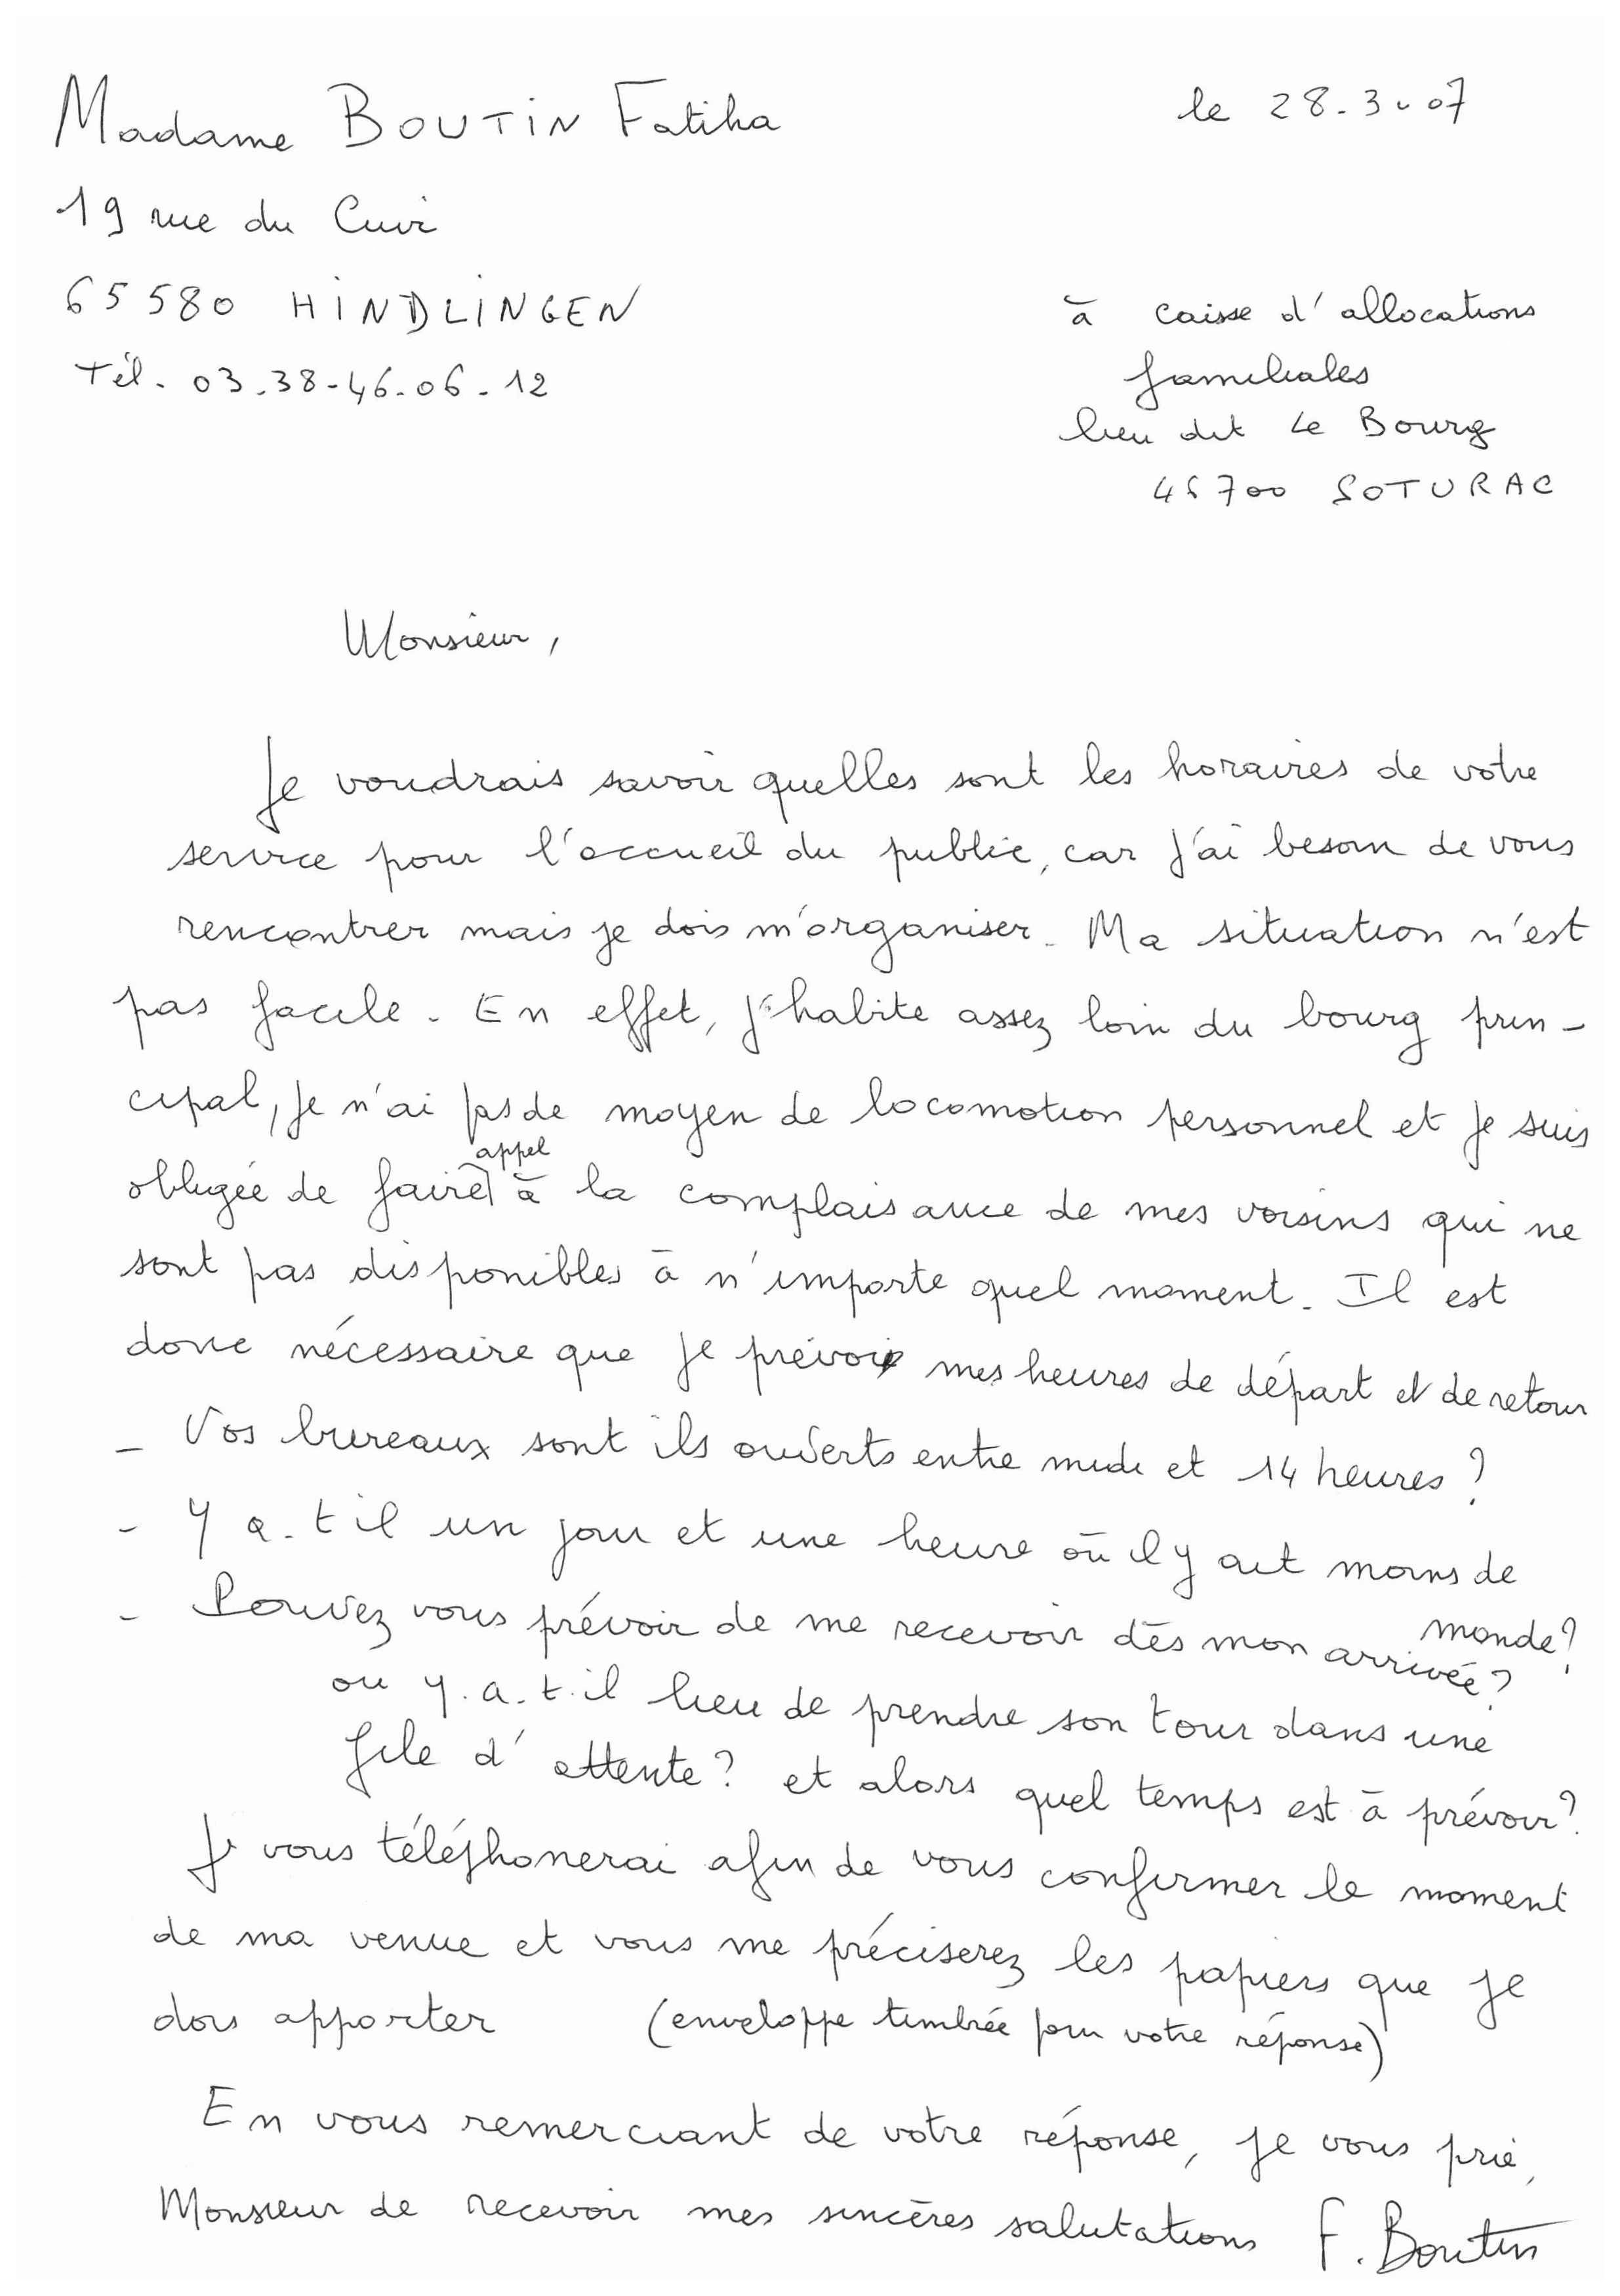 Madame BOUTIN Fatiha
le 28.3.07
19 rue du Cuvi
65580 HINDLINGEN
Tél. 03.38-46.06.12
à caisse d'allocations
familiales
lieu dit Le Bourg
46700 SOTURAC
Monsieur,
Je voudrais savoir quelles sont les horaires de votre
service pour l'accueil du public, car j'ai besoin de vous
rencontrer mais je dois m'organiser. Ma situation n'est
pas facile. En effet, j'habite assez loin du bourg prin-
cipal, je n'ai pas de moyen de locomotion personnel et je suis
obligée de faire appel à la complaisance de mes voisins qui ne
sont pas disponibles à n'importe quel moment. Il est
donc nécessaire que je prévois mes heures de départ et de retour
- Vos bureaux sont ils ouverts entre midi et 14 heures ?
- Y a.t il un jour et une heure où il y ait moins de
monde ?
- Pouvez vous prévoir de me recevoir dès mon arrivée ?
ou y.a.t.il lieu de prendre son tour dans une
file d'attente ? et alors quel temps est à prévoir ?
Je vous téléphonerai afin de vous confirmer le moment
de ma venue et vous me préciserez les papiers que je
dois apporter (enveloppe timbrée pour votre réponse)
En vous remerciant de votre réponse, je vous prie,
Monsieur de recevoir mes sincères salutations F. Boutin